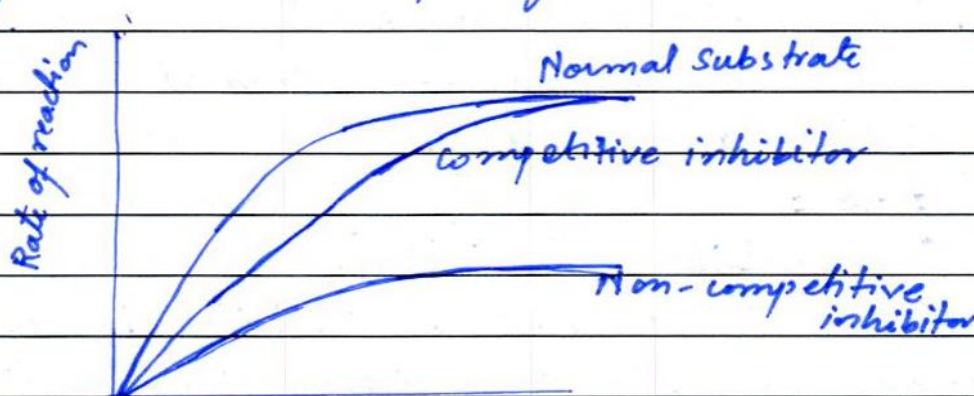 Rate of reaction
Normal substrate
competitive inhibitor
Non-competitive
inhibitor